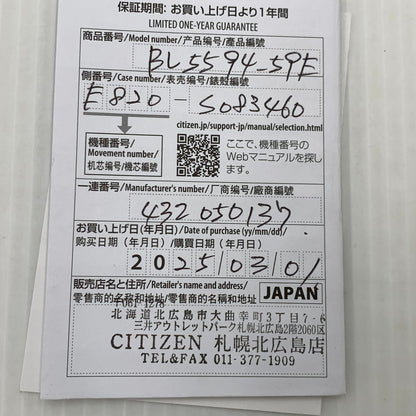 保証期間: お買い上げ日より1年間
LIMITED ONE-YEAR GUARANTEE
商品番号/Model number/产品编号/產品編號
BL5594-59E
側番号/Case number/表壳编号/錶殼編號
E820 - S083460
citizen.jp/support-jp/manual/selection.html
機種番号/
Movement number/
机芯编号/機芯編號
ここで、機種番号の
Webマニュアルを探し
ます。
一連番号/Manufacturer's number/厂商编号/廠商編號
432050137
お買い上げ日(年月日)/Date of purchase (yy/mm/dd)/
购买日期(年月日)/購買日期(年月日)
2025/03/01
販売店名と住所/Retailer's name and address/
零售商的名称和地址/零售商的名稱和地址
JAPAN
〒061-1278
北海道北広島市大曲幸町3丁目7-6
三井アウトレットパーク札幌北広島2階2060区
CITIZEN 札幌北広島店
TEL&FAX 011-377-1909